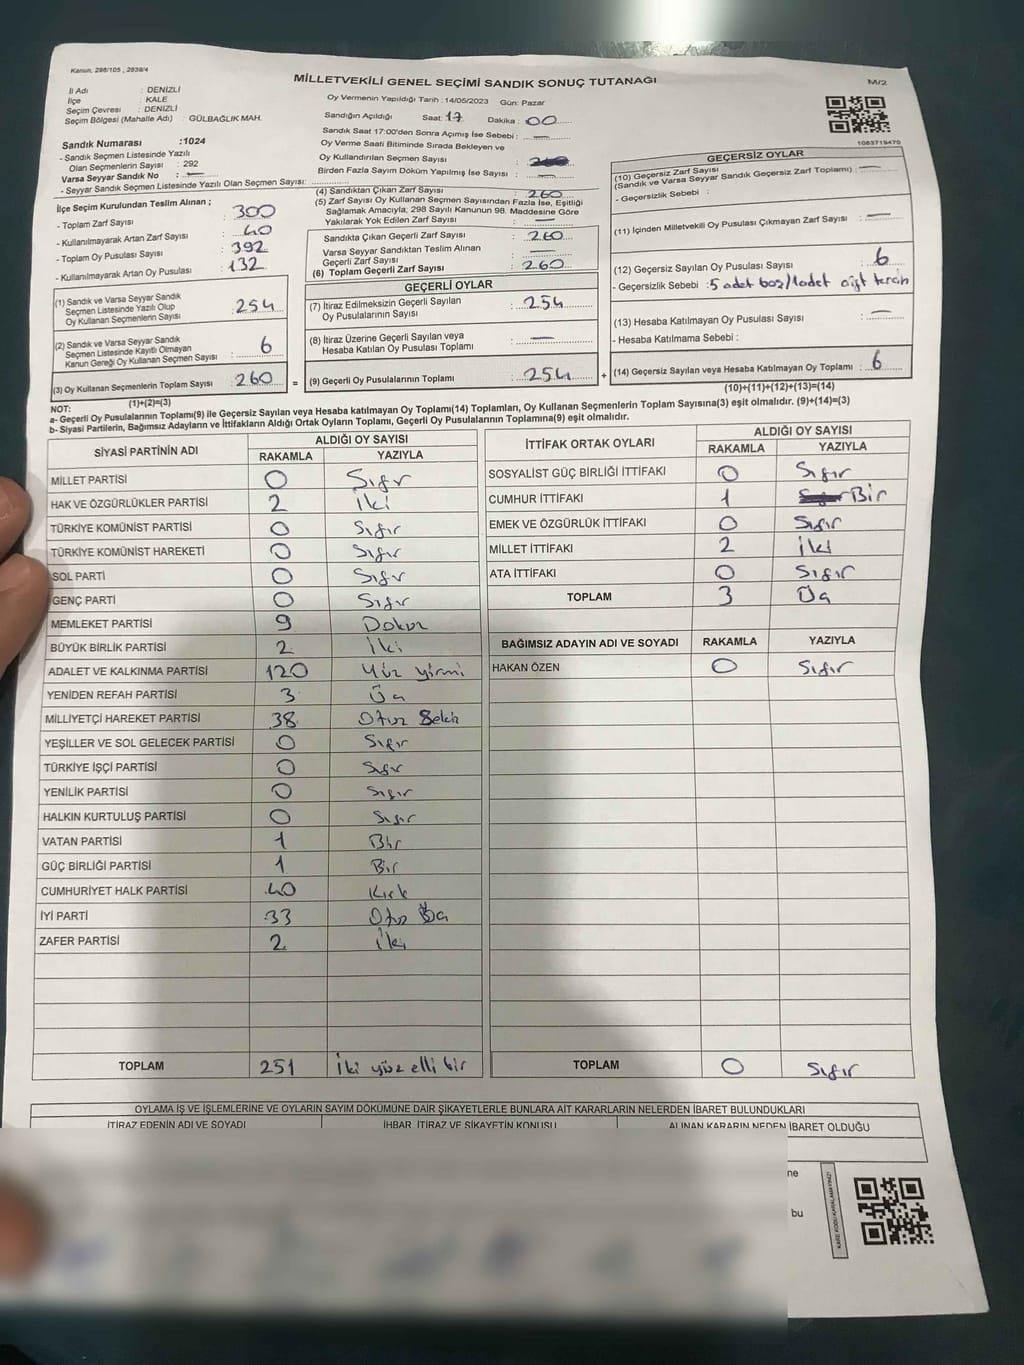 Kanun, 298/105 , 2839/4
MİLLETVEKİLİ GENEL SEÇİMİ SANDIK SONUÇ TUTANAĞI
M/2
İl Adı : DENİZLİ
İlçe : KALE
Seçim Çevresi : DENİZLİ
Seçim Bölgesi (Mahalle Adı) : GÜLBAĞLIK MAH.
Sandık Numarası :1024
- Sandık Seçmen Listesinde Yazılı
Olan Seçmenlerin Sayısı : 292
Varsa Seyyar Sandık No : —
- Seyyar Sandık Seçmen Listesinde Yazılı Olan Seçmen Sayısı:
Oy Vermenin Yapıldığı Tarih : 14/05/2023 Gün: Pazar
Sandığın Açıldığı Saat: 17 Dakika : 00
Sandık Saat 17:00'den Sonra Açımış İse Sebebi : —
Oy Verme Saati Bitiminde Sırada Bekleyen ve
Oy Kullandırılan Seçmen Sayısı :
Birden Fazla Sayım Döküm Yapılmış İse Sayısı : —
1083719470
İlçe Seçim Kurulundan Teslim Alınan ;
- Toplam Zarf Sayısı : 300
- Kullanılmayarak Artan Zarf Sayısı : 40
- Toplam Oy Pusulası Sayısı : 392
- Kullanılmayarak Artan Oy Pusulası : 132
(1) Sandık ve Varsa Seyyar Sandık
Seçmen Listesinde Yazılı Olup
Oy Kullanan Seçmenlerin Sayısı : 254
(2) Sandık ve Varsa Seyyar Sandık
Seçmen Listesinde Kayıtlı Olmayan
Kanun Gereği Oy Kullanan Seçmen Sayısı : 6
(3) Oy Kullanan Seçmenlerin Toplam Sayısı : 260 =
(1)+(2)=(3)
(4) Sandıktan Çıkan Zarf Sayısı : 260
(5) Zarf Sayısı Oy Kullanan Seçmen Sayısından Fazla İse, Eşitliği
Sağlamak Amacıyla, 298 Sayılı Kanunun 98. Maddesine Göre
Yakılarak Yok Edilen Zarf Sayısı : —
Sandıkta Çıkan Geçerli Zarf Sayısı : 260
Varsa Seyyar Sandıktan Teslim Alınan
Geçerli Zarf Sayısı : —
(6) Toplam Geçerli Zarf Sayısı : 260
GEÇERLİ OYLAR
(7) İtiraz Edilmeksizin Geçerli Sayılan
Oy Pusulalarının Sayısı : 254
(8) İtiraz Üzerine Geçerli Sayılan veya
Hesaba Katılan Oy Pusulası Toplamı : —
(9) Geçerli Oy Pusulalarının Toplamı : 254 +
GEÇERSİZ OYLAR
(10) Geçersiz Zarf Sayısı
(Sandık ve Varsa Seyyar Sandık Geçersiz Zarf Toplamı) : —
- Geçersizlik Sebebi :
(11) İçinden Milletvekili Oy Pusulası Çıkmayan Zarf Sayısı : —
(12) Geçersiz Sayılan Oy Pusulası Sayısı : 6
- Geçersizlik Sebebi : 5 adet boş/1 adet çift tercih
(13) Hesaba Katılmayan Oy Pusulası Sayısı : —
- Hesaba Katılmama Sebebi :
(14) Geçersiz Sayılan veya Hesaba Katılmayan Oy Toplamı : 6
(10)+(11)+(12)+(13)=(14)
NOT:
a- Geçerli Oy Pusulaların Toplamı(9) ile Geçersiz Sayılan veya Hesaba katılmayan Oy Toplamı(14) Toplamları, Oy Kullanan Seçmenlerin Toplam Sayısına(3) eşit olmalıdır. (9)+(14)=(3)
b- Siyasi Partilerin, Bağımsız Adayların ve İttifakların Aldığı Ortak Oyların Toplamı, Geçerli Oy Pusulalarının Toplamına(9) eşit olmalıdır.
SİYASİ PARTİNİN ADI ALDIĞI OY SAYISI
RAKAMLA YAZIYLA
MİLLET PARTİSİ 0 Sıfır
HAK VE ÖZGÜRLÜKLER PARTİSİ 2 İki
TÜRKİYE KOMÜNİST PARTİSİ 0 Sıfır
TÜRKİYE KOMÜNİST HAREKETİ 0 Sıfır
SOL PARTİ 0 Sıfır
GENÇ PARTİ 0 Sıfır
MEMLEKET PARTİSİ 9 Dokuz
BÜYÜK BİRLİK PARTİSİ 2 İki
ADALET VE KALKINMA PARTİSİ 120 Yüz yirmi
YENİDEN REFAH PARTİSİ 3 Üç
MİLLİYETÇİ HAREKET PARTİSİ 38 Otuz Sekiz
YEŞİLLER VE SOL GELECEK PARTİSİ 0 Sıfır
TÜRKİYE İŞÇİ PARTİSİ 0 Sıfır
YENİLİK PARTİSİ 0 Sıfır
HALKIN KURTULUŞ PARTİSİ 0 Sıfır
VATAN PARTİSİ 1 Bir
GÜÇ BİRLİĞİ PARTİSİ 1 Bir
CUMHURİYET HALK PARTİSİ 40 Kırk
İYİ PARTİ 33 Otuz Üç
ZAFER PARTİSİ 2 İki
TOPLAM 251 İki yüz elli bir
İTTİFAK ORTAK OYLARI ALDIĞI OY SAYISI
RAKAMLA YAZIYLA
SOSYALİST GÜÇ BİRLİĞİ İTTİFAKI 0 Sıfır
CUMHUR İTTİFAKI 1 Bir
EMEK VE ÖZGÜRLÜK İTTİFAKI 0 Sıfır
MİLLET İTTİFAKI 2 İki
ATA İTTİFAKI 0 Sıfır
TOPLAM 3 Üç
BAĞIMSIZ ADAYIN ADI VE SOYADI RAKAMLA YAZIYLA
HAKAN ÖZEN 0 Sıfır
TOPLAM 0 Sıfır
OYLAMA İŞ VE İŞLEMLERİNE VE OYLARIN SAYIM DÖKÜMÜNE DAİR ŞİKAYETLERLE BUNLARA AİT KARARLARIN NELERDEN İBARET BULUNDUKLARI
İTİRAZ EDENİN ADI VE SOYADI İHBAR, İTİRAZ VE ŞİKAYETİN KONUSU ALINAN KARARIN NEDEN İBARET OLDUĞU
ne
bu
KARE KODU KARALAMAYINIZ!